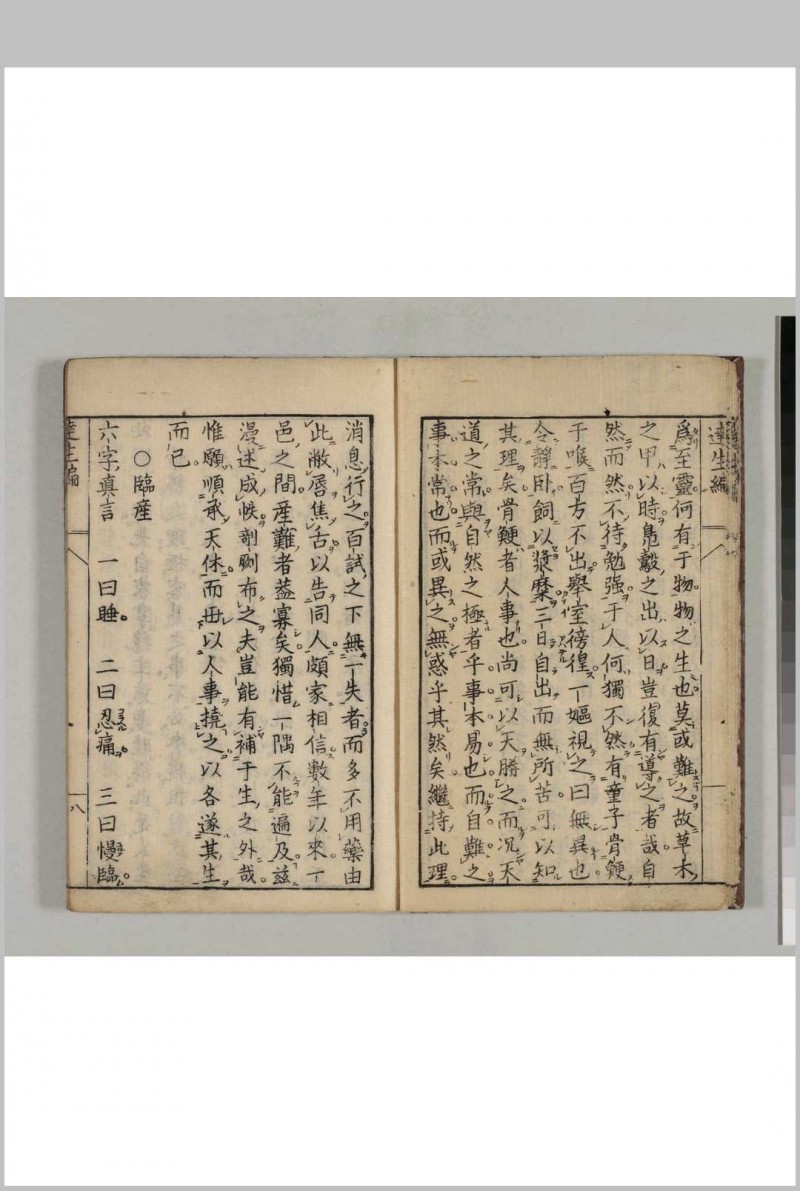 達生編
爲至靈何有于物物之生也莫或難之故草木
之甲以時鳧鷇之出以日豈復有導之者哉自
然而然不待勉强于人何獨不然有童子骨鯁
于喉百方不出擧室徬徨一嫗視之曰無異也
令靜臥飼以漿糜三日自出而無所苦可以知
其理矣骨鯁者人事也尚可以天勝之而況天
道之常與自然之極者乎事本易也而自難之
事本常也而或異之無惑乎其然矣繼持此理
消息行之百試之下無一失者而多不用藥由
此敝唇焦舌以告同人頗家相信數年以來一
邑之間産難者葢寡矣獨惜一隅不能遍及茲
漫述成帙剞劂布之夫豈能有補于生之外哉
惟願順承天休而毋以人事撓之以各遂其生
而已
〇臨産
六字真言 一曰睡 二曰忍痛 三曰慢臨
達生編
八